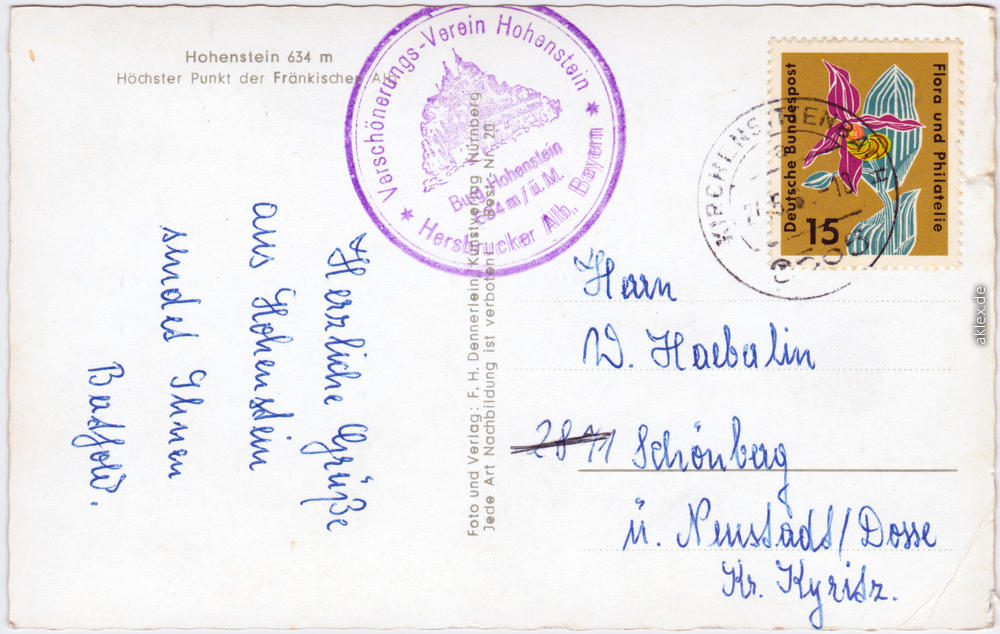 Hohenstein 634 m
Höchster Punkt der Fränkischen Alb
Verschönerungs-Verein Hohenstein
Burg Hohenstein
634 m/ü.M.
* Hersbrucker Alb, Bayern *
Foto und Verlag: F. H. Dennerlein, Kunstverlag, Nürnberg
Jede Art Nachbildung ist verboten! Best. Nr. 20
Herzliche Grüße
aus Hohenstein
sendet Ihnen
Deutsche Bundespost
Flora und Philatelie
15
KIRCHENSITTENBACH
Herrn
W. Haeberlin
2841 Schönberg
ü. Neustadt/Dosse
Kr. Kyritz.
aklex.de